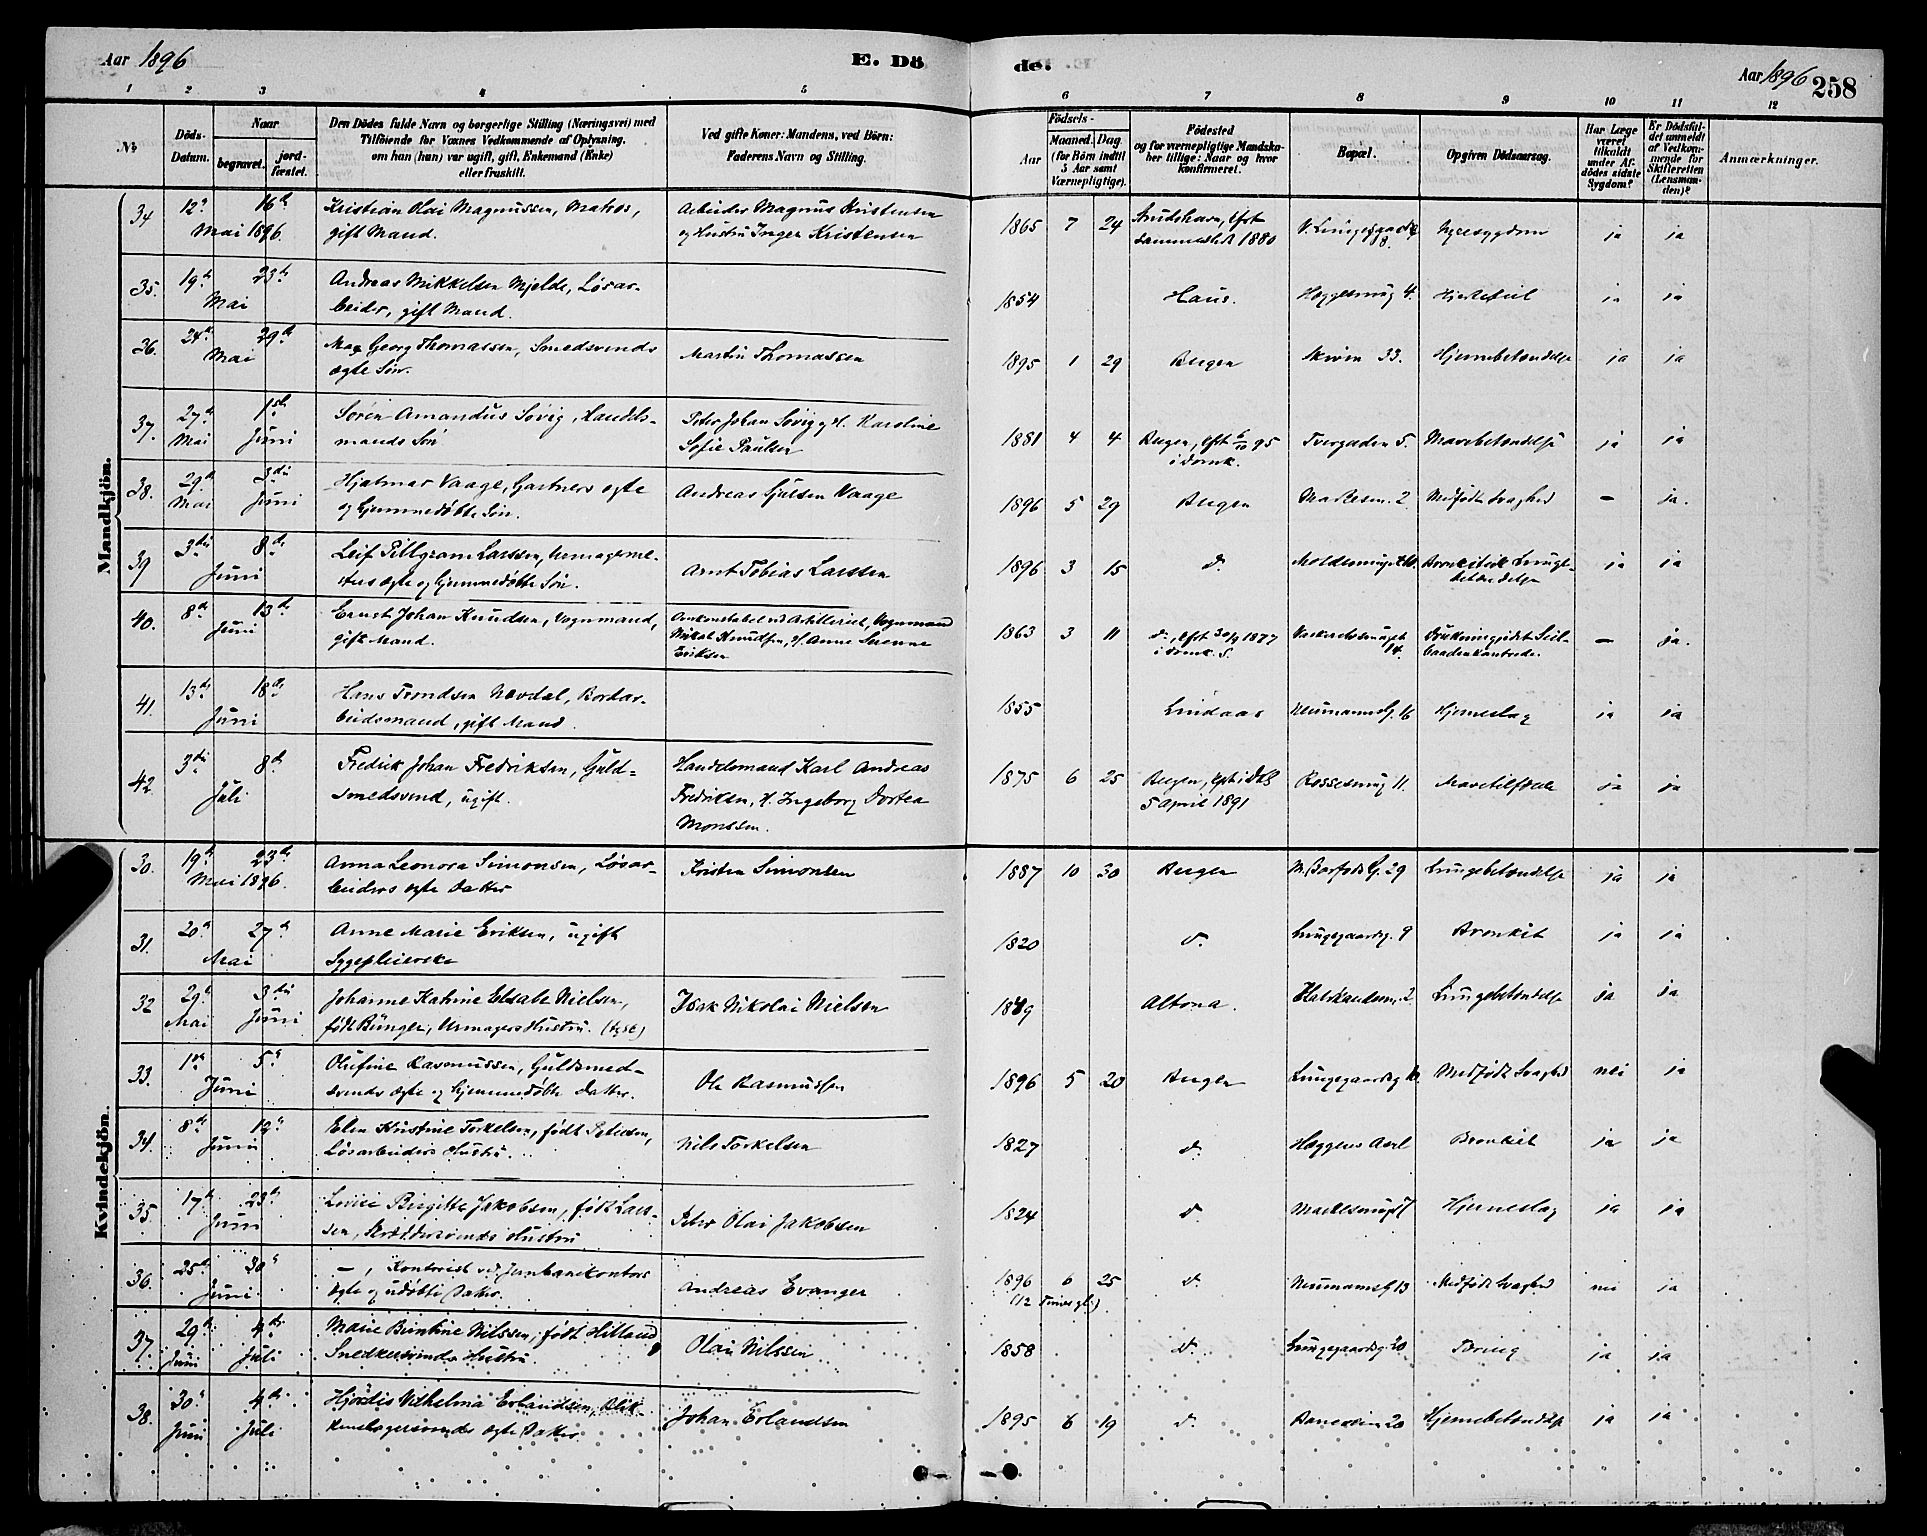 Aar 1896
E. Dö
de.
Aar 1896
258
1 2 3 4 5 6 7 8 9 10 11 12
No
Döds-
Datum.
Naar
begravet.
jord-
fæstet.
Den Dödes fulde Navn og borgerlige Stilling (Næringsvei) med
Tilföiende for Voxnes Vedkommende af Oplysning,
om han (hun) var ugift, gift, Enkemand (Enke)
eller fraskilt.
Ved gifte Koner: Mandens, ved Börn:
Faderens Navn og Stilling.
Aar
Födsels-
Maaned. Dag.
(for Börn indtil
5 Aar samt
Værnepligtige).
Födested
og for værnepligtige Mandska-
ber tillige: Naar og hvor
konfirmeret.
Bopæl.
Opgiven Dödsaarsag.
Har Læge
været
tilkaldt
under Af-
dödes sidste
Sygdom?
Er Dödsfal-
det anmeldt
af Vedkom-
mende for
Skifteretten
(Lensman-
den)?
Anmærkninger.
Mandkjön.
34 12 16de Kristian Olai Magnussen, Matros, Arbeider Magnus Kristensen 1865 7 24 sammested 1880 Nyresygdom ja ja
Mai 1896. gift Mand. og Hustru Inger Kristensen
35. 19de 23de Andreas Mikkelsen Mjelde, Løsar- 1854 Haus. 4. Hjertefeil ja ja
Mai beider, gift Mand.
36. 24de 29de Max Georg Thomassen, Smedsvends Martin Thomassen 1895 1 29 Bergen Skiven 33. Hjernebetændelse ja ja
Mai ægte Søn.
37. 27de 1ste Søren Amandus Søvig, Handels- Peter Johan Søvig og H. Karoline 1881 4 4 Bergen, cfrt 95 Tvergaden 5. Mavebetændelse ja ja
Mai Juni mands Søn Sofie Paulsen i Domk.
38. 29de 3die Hjalmar Vaage, Gartners ægte Andreas Vaage 1896 5 29 Bergen 2 Medfødt Svaghed — ja.
Mai Juni og hjemmedøbte Søn.
39 3die 8de Leif Pillgram Larssen, Urmagerme- Arnt Tobias Larssen 1896 3 15 do ja ja
Juni sters ægte og hjemmedøbte Søn. betændelse
40. 8de 13de Ernst Johan Knudsen, Vognmand, Vognmand 1863 3 11 do, cfrt 30/9 1877 — ja.
Juni gift Mand. Knudsen, H. Anne i Domk. 14.
Eriksen
41. 13de 18de Hans Trondsen Nævdal, Bordar- 1855 Lindaas Neumannsg. 16 Hjerneslag ja ja
Juni beidsmand, gift Mand.
42. 3die 8de Fredrik Johan Fredriksen, Guld- Handelsmand Karl Andreas 1875 6 25 Bergen, cfrt i 11. ja ja
Juli smedsvend, ugift. Fredriksen, H. Ingeborg Dortea 5 April 1891
Monssen.
Kvindekjön.
30. 19de 23de Anna Leonora Simonsen, Løsar- Kristen Simonsen 1887 10 30 Bergen 29 Lungebetændelse ja ja
Mai 1896. beiders ægte Datter
31. 20de 27de Anne Marie Eriksen, ugift 1820 do Lungegaardsg. 9 Bronkit ja ja
Mai Sygepleierske
32 29de 3die Johanne Katrine Elsabe Nielsen, Isak Nikolai Nielsen 18 9 Altona. 2 Lungebetændelse ja ja
Mai Juni født Bünger, Urmagers Hustru.
33. 1ste 5te Olufine Rasmussen, Guldsmed- Ole Rasmussen 1896 5 20 Bergen Medfødt Svaghed nei ja
Juni svends ægte og hjemmedøbte Datter.
34. 8de 12te Elen Kristine Torkelsen, født Petersen, Nils Torkelsen 1827 do Bronkit ja ja
Juni Løsarbeiders Hustru.
35. 17de 23de Lovise Birgitte Jakobsen, født Lars- Peter Olai Jakobsen 1824 do Hjerneslag ja ja
Juni sen, Skræddersvends Hustru
36. 25de 30te —, Kontorist ved Jernbanekontors Andreas Evanger 1896 6 25 do Neumannsg 13 Medfødt Svaghed nei ja
Juni ægte og udøbte Datter. (12 Timer gl.).
37. 29de 4de Marie Berntine Nilssen, født Hilland Olai Nilssen 1858 do Lungegaardsg. 20 Tæring ja ja
Juni Juli Snedkersvends Hustru.
38. 30te 4de Hjördis Vilhelmina Erlandsen, Blik- Johan Erlandsen 1895 6 19 do 20 Hjernebetændelse ja ja
Juni Juli kenslagersvends ægte Datter.